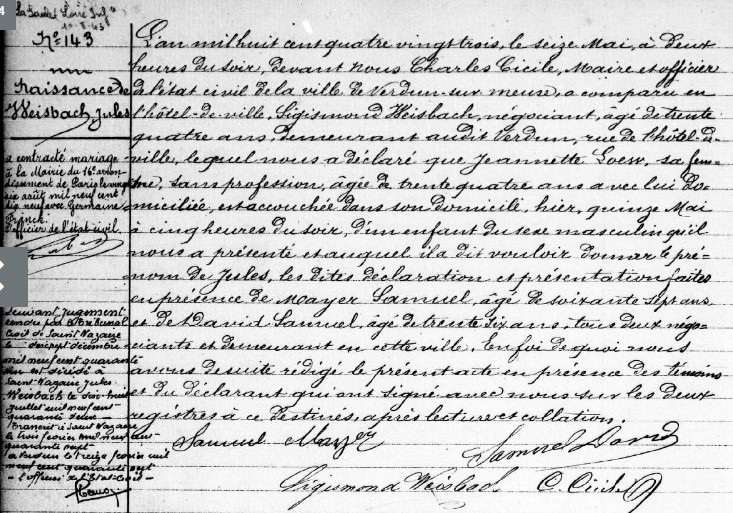 4
La Loire Inf
Nº 143
Naissance de
Weisbach, Jules
a contracté mariage
à la Mairie du 16e arron-
dissement de Paris le vingt
six août mil neuf cent
dix neuf avec Germaine
Franck.
l'officier de l'état civil.
Suivant Jugement
rendu par le Tribunal
Civil de Saint Nazaire
le dix sept décembre
mil neuf cent quarante
est décédé à
Saint Nazaire Jules
Weisbach le dix huit
Juillet mil neuf cent
quarante deux
Transcrit à Saint Nazaire
le trois février mil neuf cent
quarante sept
à Verdun le treize février mil
neuf cent quarante sept
l'officier de l'Etat Civil
L'an mil huit cent quatre vingt trois, le seize Mai, à deux
heures du soir, devant nous Charles Cicile, Maire et officier
de l'état civil de la ville de Verdun-sur-meuse, a comparu en
l'hôtel-de-ville, Sigismond Weisbach, négociant, âgé de trente
quatre ans, demeurant audit Verdun, rue de l'hôtel-de-
ville, lequel nous a déclaré que Jeannette Loew, sa fem-
me, sans profession, âgée de trente quatre ans avec lui do-
miciliée, est accouchée dans son domicile, hier, quinze Mai
à cinq heures du soir, d'un enfant du sexe masculin qu'il
nous a présenté et auquel il a dit vouloir donner le pré-
nom de Jules, les dites déclaration et présentation faites
en présence de Mayer Samuel, âgé de soixante sept ans
et de David Samuel, âgé de trente six ans, tous deux négo-
ciants et demeurant en cette ville. En foi de quoi nous
avons de suite rédigé le présent acte en présence des témoins
et du déclarant qui ont signé avec nous sur les deux
registres à ce destinés, après lecture et collation.
Samuel Mayer
Samuel David
Sigismond Weisbach C. Cicile